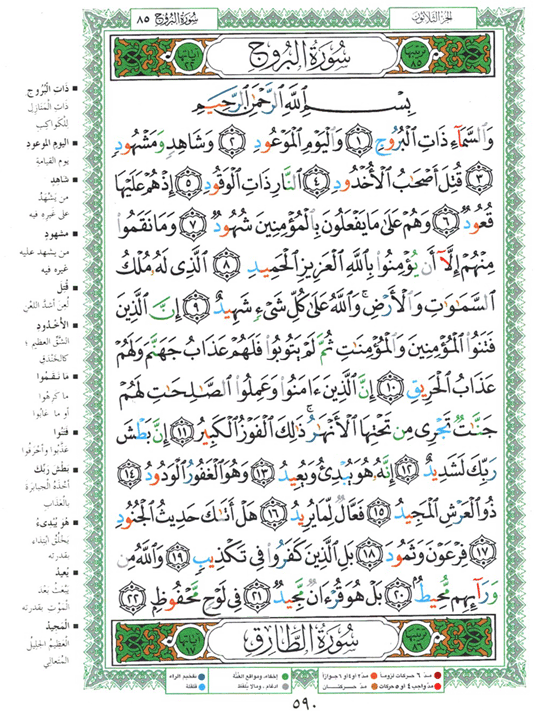 سُورَةُ البُرُوج ٨٥
الجُزءُ الثَّلَاثُون
ترتيبها ٨٥
سُورَةُ البُرُوجِ
آياتها ٢٢
بِسْمِ اللَّهِ الرَّحْمَٰنِ الرَّحِيمِ
وَالسَّمَاءِ ذَاتِ الْبُرُوجِ ١ وَالْيَوْمِ الْمَوْعُودِ ٢ وَشَاهِدٍ وَمَشْهُودٍ
٣ قُتِلَ أَصْحَابُ الْأُخْدُودِ ٤ النَّارِ ذَاتِ الْوَقُودِ ٥ إِذْ هُمْ عَلَيْهَا
قُعُودٌ ٦ وَهُمْ عَلَىٰ مَا يَفْعَلُونَ بِالْمُؤْمِنِينَ شُهُودٌ ٧ وَمَا نَقَمُوا
مِنْهُمْ إِلَّا أَن يُؤْمِنُوا بِاللَّهِ الْعَزِيزِ الْحَمِيدِ ٨ الَّذِي لَهُ مُلْكُ
السَّمَاوَاتِ وَالْأَرْضِ ۚ وَاللَّهُ عَلَىٰ كُلِّ شَيْءٍ شَهِيدٌ ٩ إِنَّ الَّذِينَ
فَتَنُوا الْمُؤْمِنِينَ وَالْمُؤْمِنَاتِ ثُمَّ لَمْ يَتُوبُوا فَلَهُمْ عَذَابُ جَهَنَّمَ وَلَهُمْ
عَذَابُ الْحَرِيقِ ١٠ إِنَّ الَّذِينَ ءَامَنُوا وَعَمِلُوا الصَّالِحَاتِ لَهُمْ
جَنَّاتٌ تَجْرِي مِن تَحْتِهَا الْأَنْهَارُ ۚ ذَٰلِكَ الْفَوْزُ الْكَبِيرُ ١١ إِنَّ بَطْشَ
رَبِّكَ لَشَدِيدٌ ١٢ إِنَّهُ هُوَ يُبْدِئُ وَيُعِيدُ ١٣ وَهُوَ الْغَفُورُ الْوَدُودُ ١٤
ذُو الْعَرْشِ الْمَجِيدُ ١٥ فَعَّالٌ لِّمَا يُرِيدُ ١٦ هَلْ أَتَاكَ حَدِيثُ الْجُنُودِ
١٧ فِرْعَوْنَ وَثَمُودَ ١٨ بَلِ الَّذِينَ كَفَرُوا فِي تَكْذِيبٍ ١٩ وَاللَّهُ مِن
وَرَائِهِم مُّحِيطٌ ٢٠ بَلْ هُوَ قُرْءَانٌ مَّجِيدٌ ٢١ فِي لَوْحٍ مَّحْفُوظٍ ٢٢
ترتيبها ٨٦
سُورَةُ الطَّارِقِ
آياتها ١٧
■ ذَات الْبُرُوج
ذَاتِ الْمَنَازِل
لِلْكَوَاكِبِ
■ اليوم الموعود
يوم القيامة
■ شاهِدٍ
من يَشْهَدُ
على غيره فيه
■ مشهودٍ
من يشهد عليه
غيره فيه
■ قُتِلَ
لُعِنَ أشَدَّ اللَّعْنِ
■ الأُخْدُود
الشَّقّ العظيم ؛
كالخَنْدَقِ
■ مَا نَقَمُوا
ما كرهوا
أو ما عابُوا
■ فَتَنُوا
عَذَّبُوا وأحْرَقُوا
■ بَطْشَ رَبِّكَ
أخْذَهُ الجبابرَةَ
بالعَذَابِ
■ هُوَ يُبْدِىءُ
يَخْلُقُ ابتداء
بقدرته
■ يُعِيدُ
يَبْعَثُ بعد
الْمَوْتِ بقدرته
■ المَجِيدُ
العَظِيمُ الجَلِيلُ
المُتَعَالِي
مدّ ٦ حركات لزوماً مدّ ٢ او ٤ او ٦ جوازاً
إخفاء، ومواقع الغُنَّة تفخيم الراء
مدّ واجب ٤ او ٥ حركات مدّ حركتان
ادغام ، ومالا يلفظ قلقلة
٥٩٠